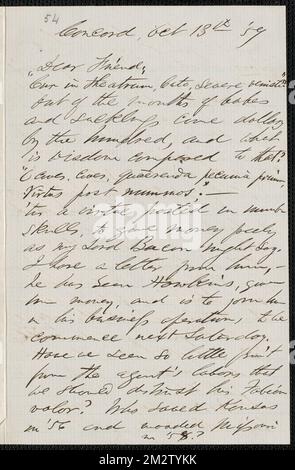 54
Concord, Oct 13th '59
"Dear Friend;
Cur in theatrum, Cato, severe venisti?"
Out of the mouths of babes
and sucklings come dollars
by the hundred, and what
is wisdom compared to that?
"O cives, cives, quaerenda pecunia primum,
Virtus post nummos." –
'tis a
skulls, to give money
as my Lord Bacon might say.
I have a letter from him, –
he has seen Hawkins, given
him money, and is to join him
in his business operation, to be
commence next Saturday.
Have we seen so little fruit
from the agent's labors that
we should distrust his Fabian
valor? Has saved Kansas
in '56 and invaded Missouri
in '58?
alamy
Image ID: 2WTYKK
www.alamy.com